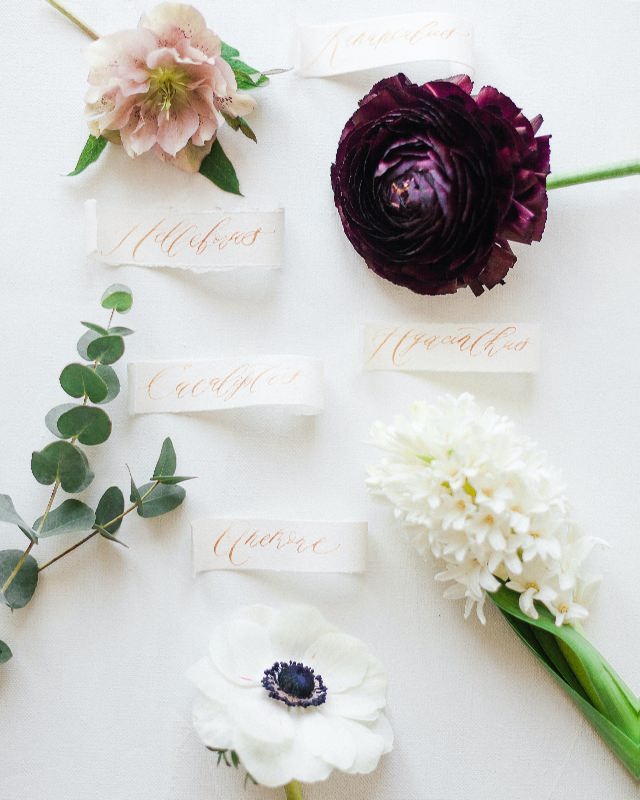 Ranunculus
Helleborus
Hyacinthus
Eucalyptus
Anemone